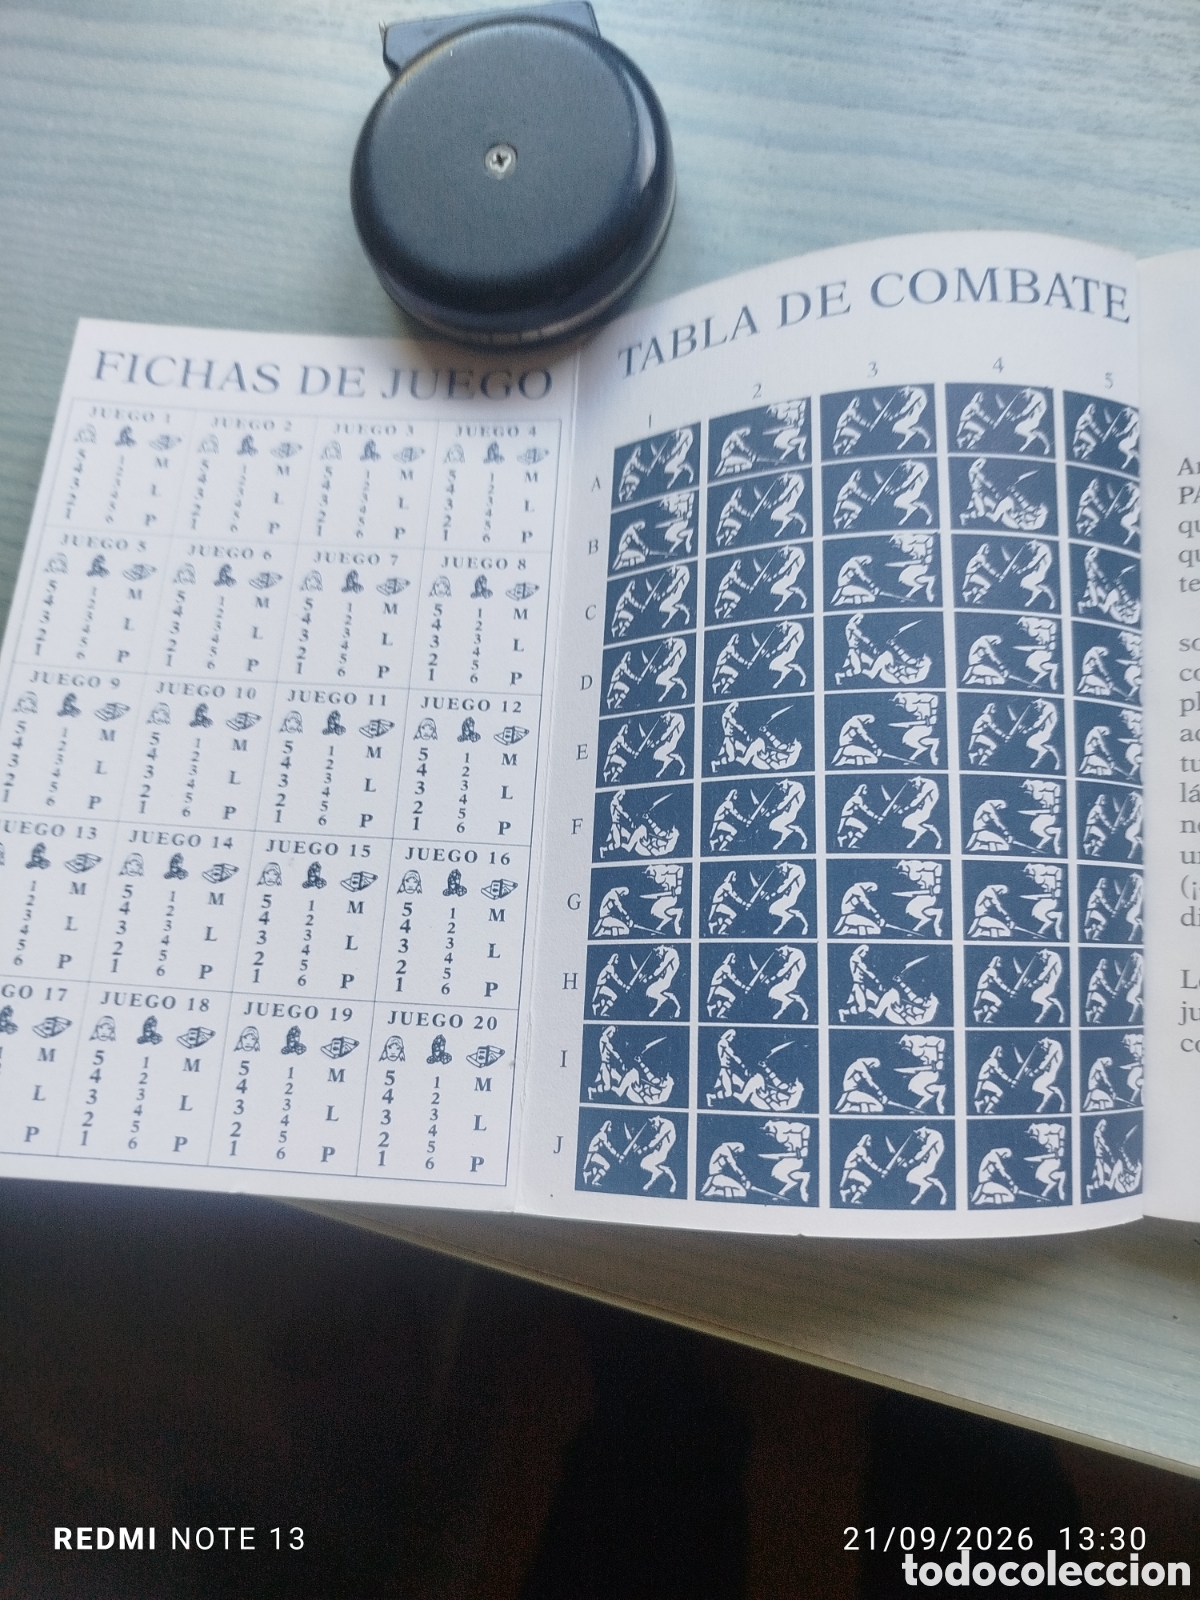 FICHAS DE JUEGO
JUEGO 1 JUEGO 2 JUEGO 3 JUEGO 4
5 1 M 5 1 M 5 1 M 5 1 M
4 2 4 2 4 2 4 2
3 3 L 3 3 L 3 3 L 3 3 L
2 4 2 4 2 4 2 4
1 5 1 5 1 5 1 5
6 P 6 P 6 P 6 P
JUEGO 5 JUEGO 6 JUEGO 7 JUEGO 8
5 1 M 5 1 M 5 1 M 5 1 M
4 2 4 2 4 2 4 2
3 3 L 3 3 L 3 3 L 3 3 L
2 4 2 4 2 4 2 4
1 5 1 5 1 5 1 5
6 P 6 P 6 P 6 P
JUEGO 9 JUEGO 10 JUEGO 11 JUEGO 12
5 1 M 5 1 M 5 1 M 5 1 M
4 2 4 2 4 2 4 2
3 3 L 3 3 L 3 3 L 3 3 L
2 4 2 4 2 4 2 4
1 5 1 5 1 5 1 5
6 P 6 P 6 P 6 P
UEGO 13 JUEGO 14 JUEGO 15 JUEGO 16
1 M 5 1 M 5 1 M 5 1 M
2 4 2 4 2 4 2
3 L 3 3 L 3 3 L 3 3 L
4 2 4 2 4 2 4
5 1 5 1 5 1 5
6 P 6 P 6 P 6 P
GO 17 JUEGO 18 JUEGO 19 JUEGO 20
M 5 1 M 5 1 M 5 1 M
4 2 4 2 4 2
L 3 3 L 3 3 L 3 3 L
2 4 2 4 2 4
1 5 1 5 1 5
P 6 P 6 P 6 P
TABLA DE COMBATE
1 2 3 4 5
A
B
C
D
E
F
G
H
I
J
qu
qu
te
so
co
pl
ac
tu
lá
ne
un
(¡
di
ju
co
REDMI NOTE 13
21/09/2026 13:30
todocoleccion